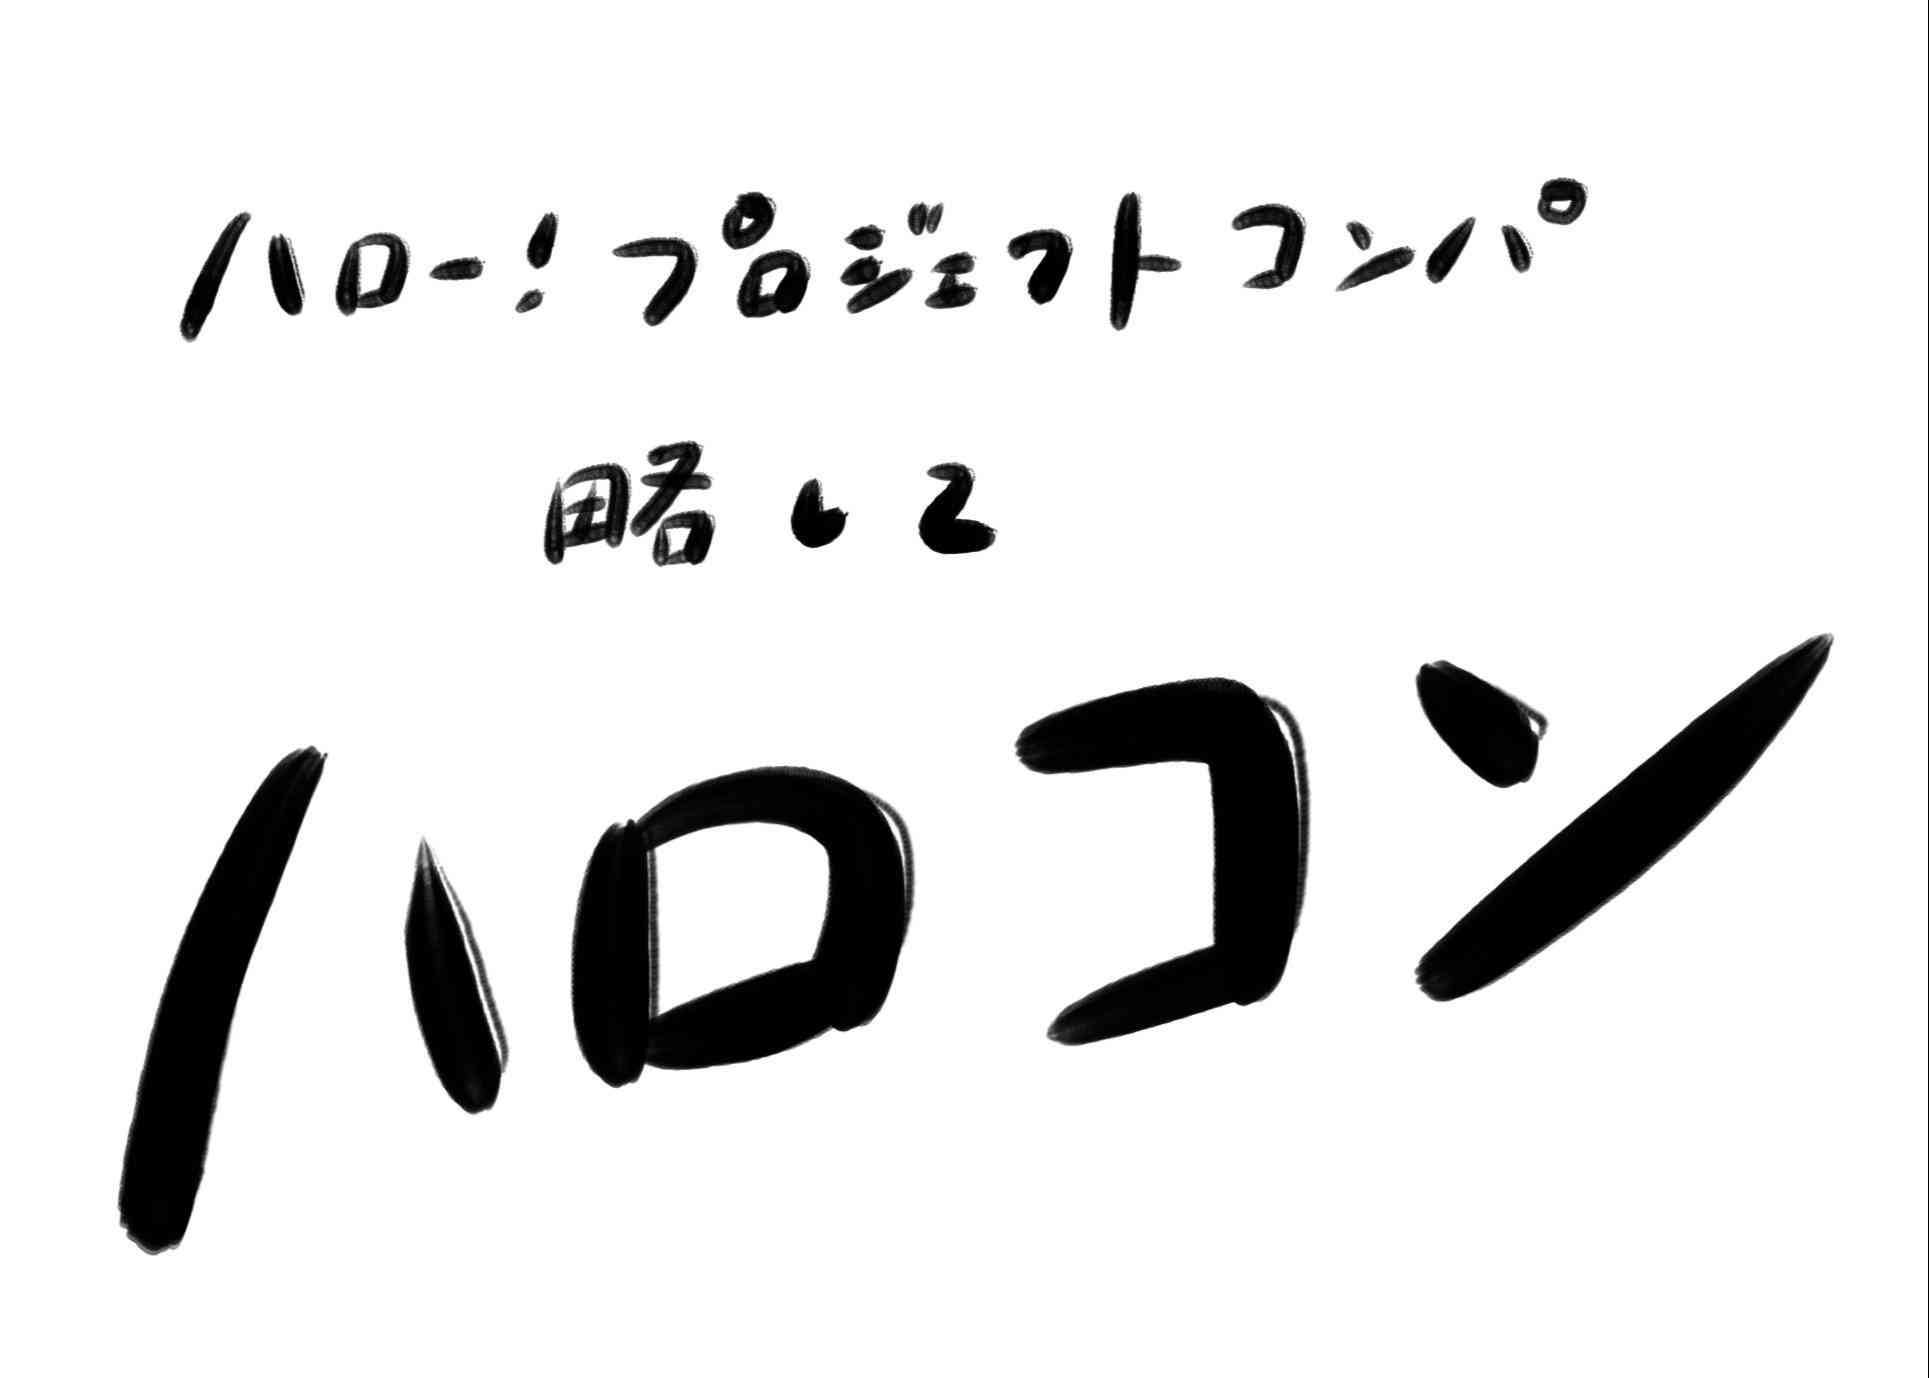 ハロー!プロジェクトコンパ
略して
ハロコン